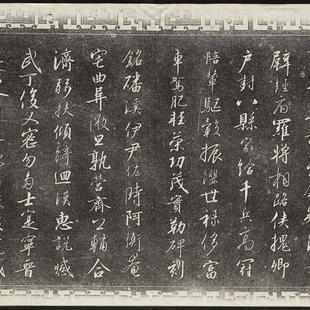 壁經府羅將相路俠槐卿
户封八縣家給千兵高冠
陪輦驅轂振纓世禄侈富
車駕肥輕策功茂實勒碑刻
銘磻溪伊尹佐時阿衡奄
宅曲阜微旦孰營齊公輔合
濟弱扶傾綺迴漢惠説感
武丁俊乂密勿多士寔寧晋